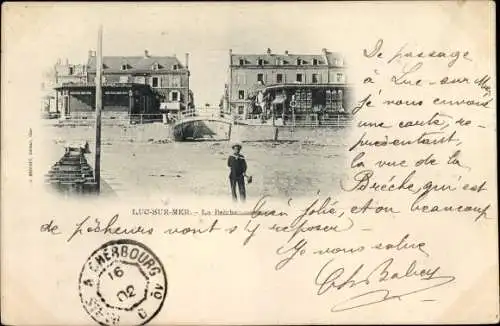 De passage
à Luc-sur-mer
je vous envoie
une carte re-
présentant
la vue de la
Brèche, qui est
bien jolie, et on beaucoup
de pêcheurs vont s'y reposer
Je vous salue
Ch Babey
LUC-SUR-MER. - La Brèche
CHERBOURG
16
02